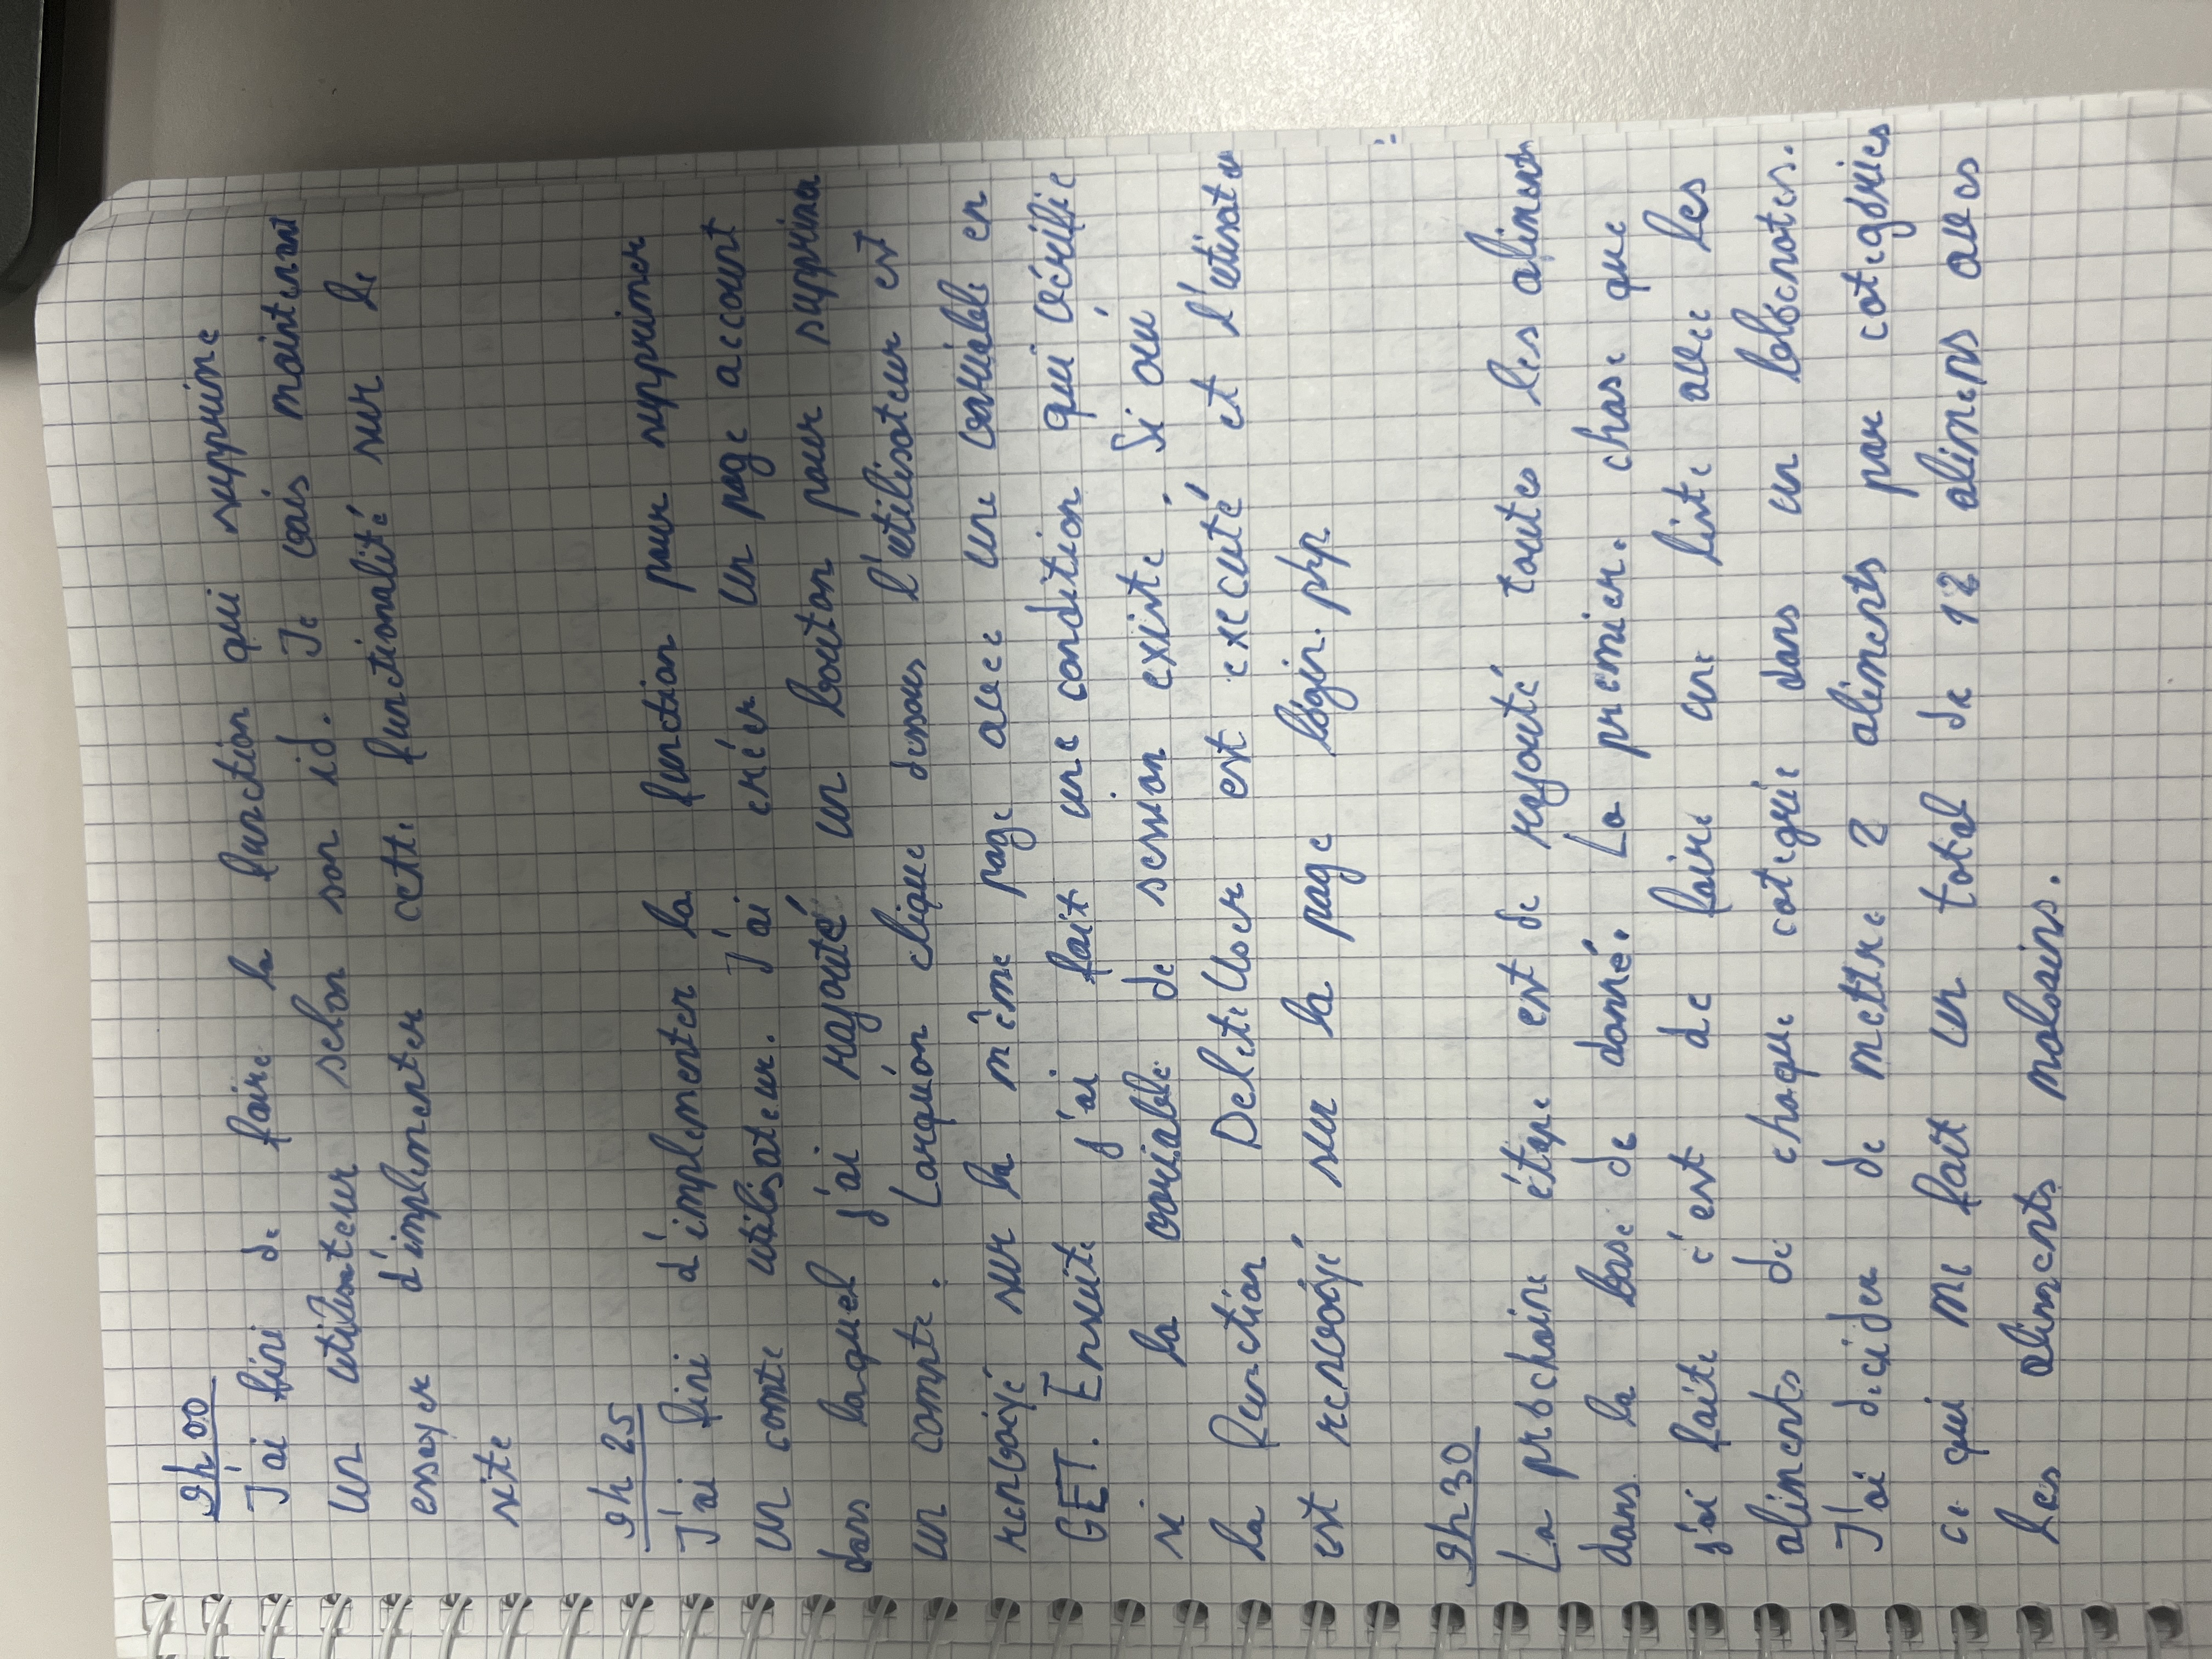 9h00
J'ai fini de faire la function qui supprime
un utilisateur selon son id. Je vais maintenant
essayer d'implementer cette functionalité sur le
site
9h 25
J'ai fini d'implementer la function pour supprimer
un comte utilisateur. J'ai créer un page account
dans laquel j'ai rajouté un bouton pour supprimer
un compte. Lorqu'on clique dessous l'utilisateur est
renvoiyé sur la même page avec une variable en
GET. Ensuite j'ai fait une condition qui vérifie
si la variable de session existe. Si oui
la function DeleteUser est executé et l'utisateu
est renvoiyé sur la page login.php
9h30
La prochaine étape est de rajouté toutes les aliments
dans la base de donné. La premiere chose que
j'ai faite c'est de faire une liste avec les
aliments de chaque categrie dans un blocnotes.
J'ai decider de mettre 2 aliments par categories
ce qui me fait un total de 12 alimens aves
les aliments malsains.